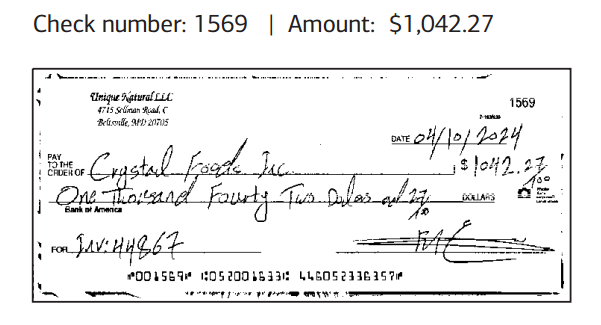 Check number: 1569 | Amount: $1,042.27
Unique Natural LLC
4715 Sellman Road, C
Beltsville, MD 20705
1569
DATE 04/10/2024
PAY TO THE ORDER OF Crystal Foods Inc. $1042.27/100
One Thousand Fourty Two Dolas and 27/100 DOLLARS
Bank of America
FOR INV: 44867
⑈001569⑈ ⑆052001633⑆ 446052336357⑈